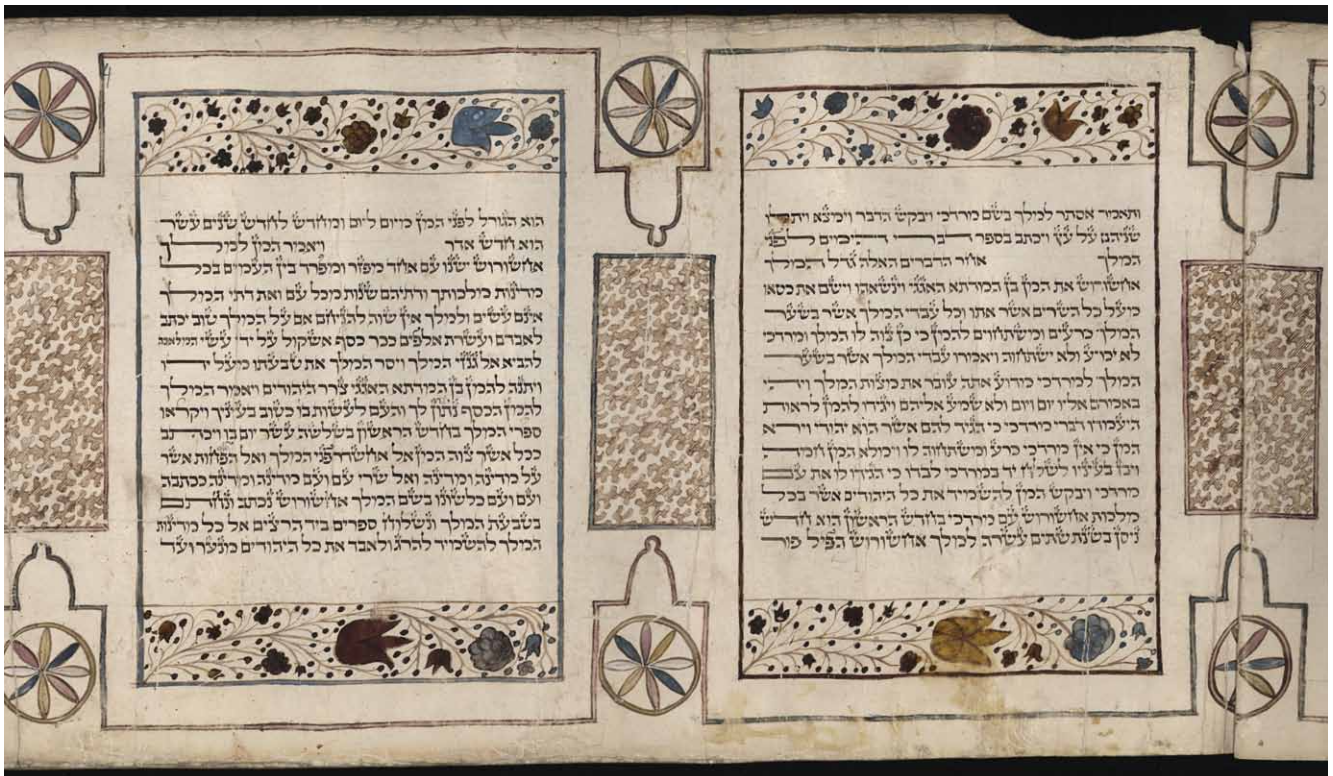 3
ותאמר אסתר למלך בשם מרדכי ויבקש הדבר וימצא ויתלו
שניהם על עץ ויכתב בספר דברי הימים לפני
המלך אחר הדברים האלה גדל המלך
אחשורוש את המן בן המדתא האגגי וינשאהו וישם את כסאו
מעל כל השרים אשר אתו וכל עבדי המלך אשר בשער
המלך כרעים ומשתחוים להמן כי כן צוה לו המלך ומרדכי
לא יכרע ולא ישתחוה ויאמרו עבדי המלך אשר בשער
המלך למרדכי מדוע אתה עובר את מצות המלך ויהי
באמרם אליו יום ויום ולא שמע אליהם ויגידו להמן לראות
היעמדו דברי מרדכי כי הגיד להם אשר הוא יהודי וירא
המן כי אין מרדכי כרע ומשתחוה לו וימלא המן חמה
ויבז בעיניו לשלח יד במרדכי לבדו כי הגידו לו את עם
מרדכי ויבקש המן להשמיד את כל היהודים אשר בכל
מלכות אחשורוש עם מרדכי בחדש הראשון הוא חדש
ניסן בשנת שתים עשרה למלך אחשורוש הפיל פור
4
הוא הגורל לפני המן מיום ליום ומחדש לחדש שנים עשר
הוא חדש אדר ויאמר המן למלך
אחשורוש ישנו עם אחד מפזר ומפרד בין העמים בכל
מדינות מלכותך ודתיהם שנות מכל עם ואת דתי המלך
אינם עשים ולמלך אין שוה להניחם אם על המלך טוב יכתב
לאבדם ועשרת אלפים ככר כסף אשקול על ידי עשי המלאכה
להביא אל גנזי המלך ויסר המלך את טבעתו מעל ידו
ויתנה להמן בן המדתא האגגי צרר היהודים ויאמר המלך
להמן הכסף נתון לך והעם לעשות בו כטוב בעיניך ויקראו
ספרי המלך בחדש הראשון בשלשה עשר יום בו ויכתב
ככל אשר צוה המן אל אחשדרפני המלך ואל הפחות אשר
על מדינה ומדינה ואל שרי עם ועם מדינה ומדינה ככתבה
ועם ועם כלשונו בשם המלך אחשורוש נכתב ונחתם
בטבעת המלך ונשלוח ספרים ביד הרצים אל כל מדינות
המלך להשמיד להרג ולאבד את כל היהודים מנער ועד